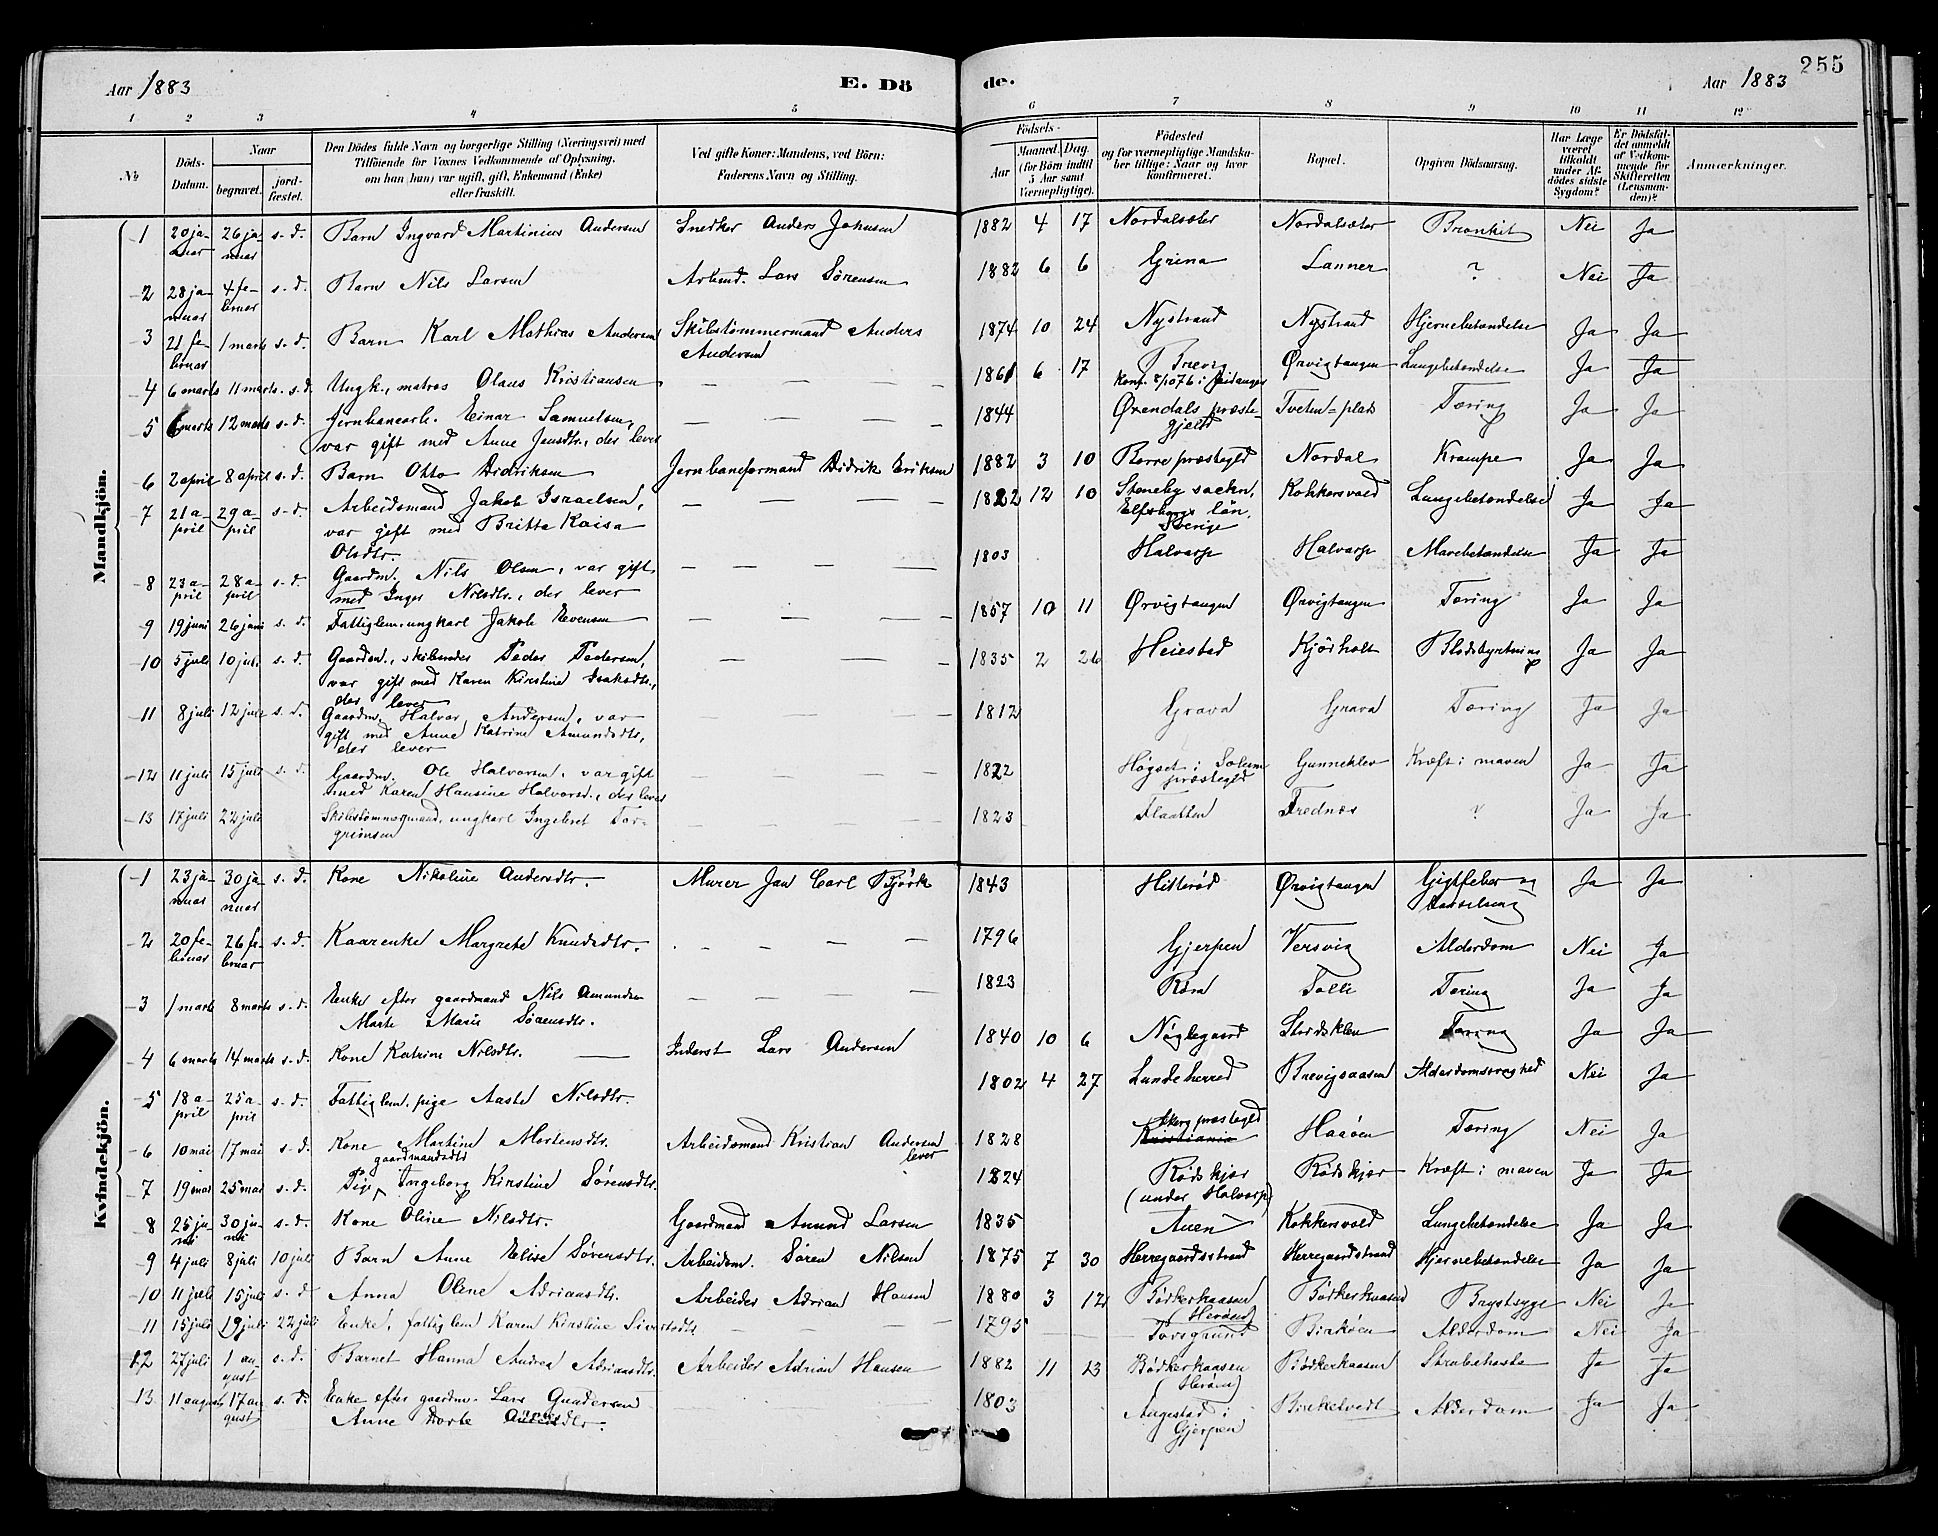 255
Aar 1883 E. Dö
de. Aar 1883
1 2 3 4 5 6 7 8 9 10 11 12
№
Döds-Datum.
Naar
begravet.
jordfæstet.
Den Dödes fulde Navn og borgerlige Stilling (Næringsvei) med
Tilföiende for Voxnes Vedkommende af Oplysning,
om han (hun) var ugift, gift, Enkemand (Enke)
eller fraskilt.
Ved gifte Koner: Mandens, ved Börn:
Faderens Navn og Stilling.
Födsels-
Aar
Maaned. Dag.
(for Börn indtil
5 Aar samt
Værnepligtige).
Födested
og for værnepligtige Mandskaber tillige: Naar og hvor
konfirmeret.
Bopæl.
Opgiven Dödsaarsag.
Har Læge været tilkaldt under Afdödes sidste Sygdom?
Er Dödsfaldet anmeldt af Vedkommende for Skifteretten (Lensmanden)?
Anmærkninger.
Mandkjön.
1 20 januar 26 januar s. d. Barn Ingvard Martinius Andersen Snedker Anders Johnsen 1882 4 17 Nordalsæter Nordalsæter Bronkit Nei Ja
2 28 januar 4 februar s. d. Barn Nils Larsen Arbmd. Lars Sørensen 1882 6 6 Grina Lanner ? Nei Ja
3 21 februar 1 marts s. d. Barn Karl Mathias Andersen Skibstømmermand Anders Andersen 1874 10 24 Nystrand Nystrand Hjernebetændelse Ja Ja
4 6 marts 11 marts s. d. Ungk., matros Olaus Kristiansen — — — 1861 6 17 Brevig Konf. 8/10 76 i Eidanger Ørvigtangen Lungebetændelse Ja Ja
5 6 marts 12 marts s. d. Jernbanearb. Einar Samuelsen, var gift med Anne Jensdtr., der lever — — — 1844 præstegjeld Tveten=plads Tæring Ja Ja
6 2 april 8 april s. d. Barn Otto Didriksen Jernbaneformand Didrik Eriksen 1882 3 10 Borre præstegjld Nordal Krampe Ja Ja
7 21 april 29 april s. d. Arbeidsmand Jakob Israelsen, var gift med Britta Kaisa Olsdtr. — — — 1822 12 10 Steneby sockn, Elfsborgs län, Sverige Kokkersvold Lungebetændelse Ja Ja
8 23 april 28 april s. d. Gaardm. Nils Olsen, var gift med Inger Nilsdtr., der lever — — — 1803 Halvarp Halvarp Mavebetændelse Ja Ja
9 19 juni 26 juni s. d. Fattiglem, ungkarl Jakob Evensen — — — 1857 10 11 Ørvigtangen Ørvigtangen Tæring Ja Ja
10 5 juli 10 juli s. d. Gaardm., skibsreder Peder Pedersen, var gift med Karen Kirstine Isaksdtr., der lever — — — 1835 2 26 Heiestad Kjørholt Blodstyrtning Ja Ja
11 8 juli 12 juli s. d. Gaardm. Halvor Andersen, var gift med Anne Katrine Amundsdtr, der lever — — — 1812 Grava Grava Tæring Ja Ja
12 11 juli 15 juli s. d. Gaardm. Ole Halvorsen, var gift med Karen Hansine Halvorsd., der lever — — — 1822 Høgset i Solum præstegjld Gunneklev Kræft i maven Ja Ja
13 17 juli 22 juli Skibstømmermand, ungkarl Ingebret Torgrimsen — — — 1823 Flaatten Frednæs ? Ja Ja
Kvindekjön.
1 23 januar 30 januar s. d. Kone Nikoline Andersdtr. Murer Jan Carl Björk 1843 Hitterød Ørvigtangen Gigtfeber og barselseng Ja Ja
2 20 februar 26 februar s. d. Kaarenke Margrete Knudsdtr. — — — 1796 Gjerpen Versvig Alderdom Nei Ja
3 1 marts 8 marts s. d. Enke efter gaardmand Nils Amundsen Marte Marie Sørensdtr. — — — 1823 Røra Tolli Tæring Ja Ja
4 6 marts 14 marts s. d. Kone Katrine Nilsdtr. Inderst Lars Andersen 1840 10 6 Nøglegaard Stridsklev Tæring Ja Ja
5 18 april 25 april s. d. Fattiglem, pige Aaste Nilsdtr. 1802 4 27 Lundeherred Brevigsaasen Alderdomssvaghed Nei Ja
6 10 mai 17 mai s. d. Kone Martine Mortensdtr. Arbeidsmand Kristian Andersen lever 1828 Aker præstegjld Kristiania Haaøen Tæring Nei Ja
7 19 mai 25 mai s. d. Pige, gaardmandsdtr Ingeborg Kirstine Sørensdtr. 1824 Rødskjær (under Halvarp) Rødskjær Kræft i maven Ja Ja
8 25 juni 30 juni s. d. Kone Oline Nilsdtr. Gaardmand Amund Larsen 1835 Auen Kokkersvold Lungebetændelse Ja Ja
9 4 juli 8 juli 10 juli Barn Anne Elise Sørensdtr. Arbeidsm. Søren Nilsen 1875 7 30 Herregaardsstrand Herregaardstrand Hjernebetændelse Ja Ja
10 11 juli 15 juli s. d Anna Oline Adriansdtr. Arbeider Adrian Hansen 1880 3 12 Bødkerhaasen (Herøen) Bødkerhaasen Brystsyge Nei Ja
11 15 juli 19 juli 22 juli Enke, fattiglem Karen Kirstine Siverts​dtr — — — 1795 — — Porsgrund Birkøen Alderdom Nei Ja
12 27 juli 1 august s. d. Barnet Hanna Andrea Adriansdtr. Arbeider Adrian Hansen 1882 11 23 Bødkerhaasen (Herøen) Bødkerhaasen Strubehoste Ja Ja
13 11 august 17 august s. d. Enke efter gaardm. Lars Gundersen Anne Dorte 1803 Augestad i Gjerpen Birkelvedt Alderdom Ja Ja